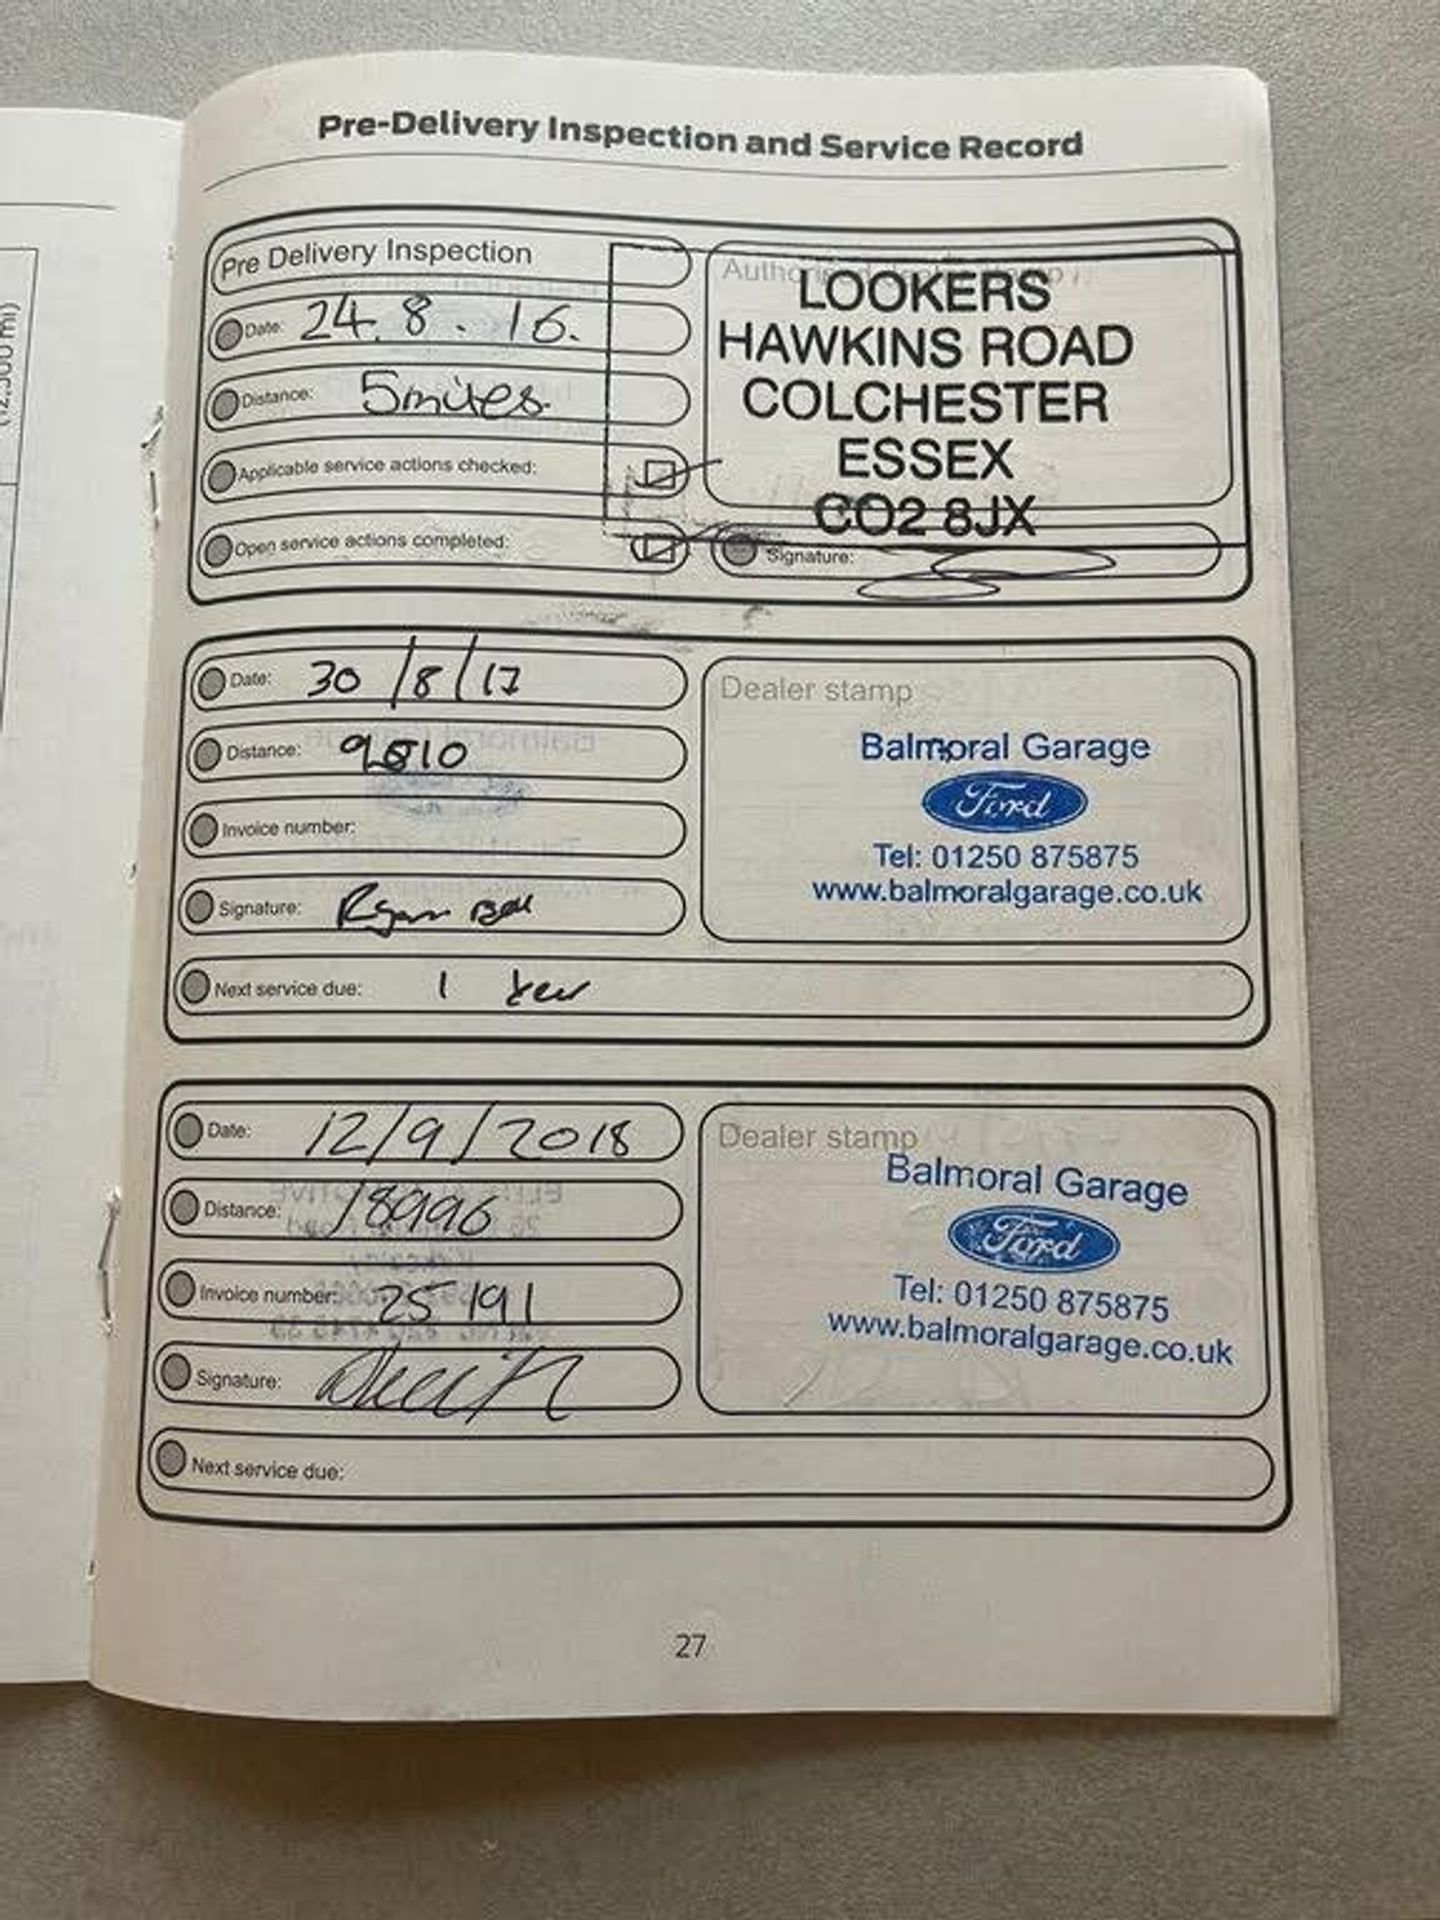 Pre-Delivery Inspection and Service Record
Pre Delivery Inspection
Date: 24. 8 . 16.
Distance: 5miles.
Applicable service actions checked:
Open service actions completed:
LOOKERS
HAWKINS ROAD
COLCHESTER
ESSEX
CO2 8JX
Signature:
Date: 30/8/17
Distance:
Invoice number:
Signature:
Next service due: 1 Year
Dealer stamp
Balmoral Garage
Ford
Tel: 01250 875875
www.balmoralgarage.co.uk
Date: 12/9/2018
Distance: 18996
Invoice number: 25191
Signature:
Next service due:
Dealer stamp
Balmoral Garage
Ford
Tel: 01250 875875
www.balmoralgarage.co.uk
27